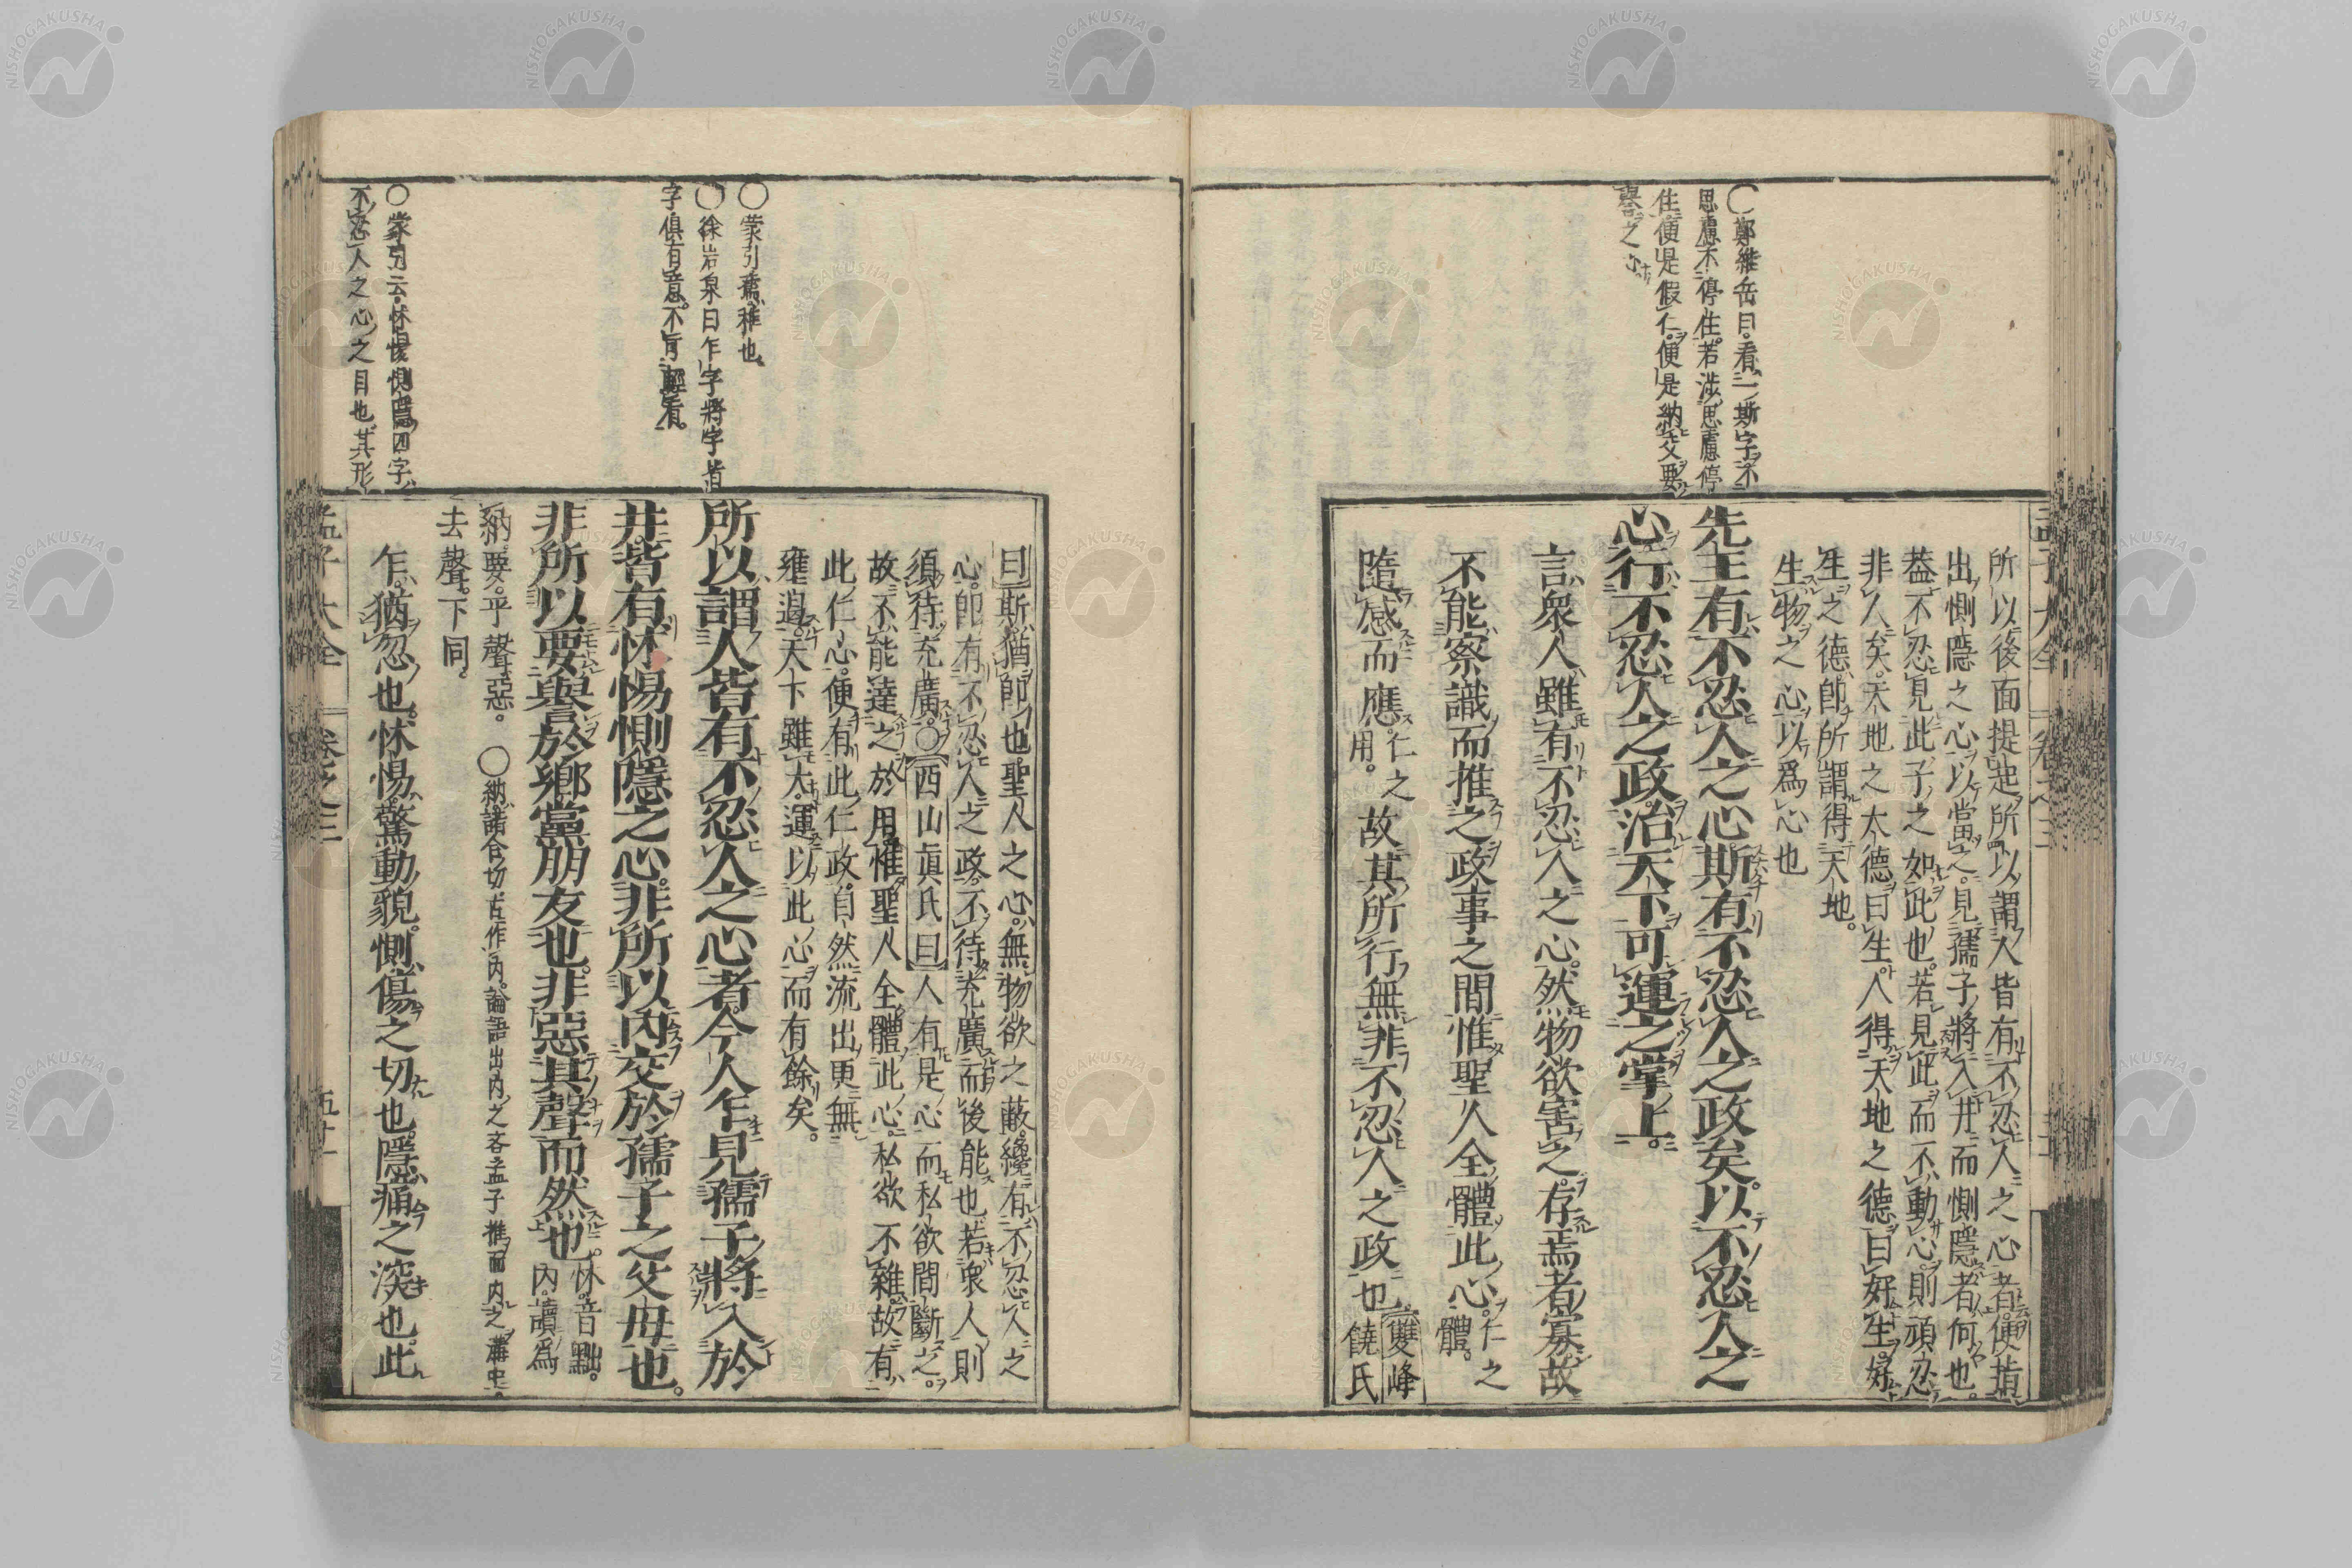 ○鄭維岳曰。看二斯字不
思慮不停住。若涉思慮停
住便是假仁。便是納交要
譽之心
所以後面提起所以謂人皆有不忍人之心者便指
出惻隱之心以當之。見孺子將入井而惻隱者何也。
葢不忍見此子之如此也。若見此而不動心則頑忍
非人矣。天地之大德曰生人得天地之德曰好生好
生之德卽所謂得天地。
生物之心以爲心也
先王有不忍人之心斯有不忍人之政矣。以不忍人之
心行不忍人之政治天下可運之掌上。
言衆人雖有不忍人之心。然物欲害之。存焉者寡。故
不能察識而推之政事之間惟聖人全體此心。仁之體。
隨感而應。仁之用。故其所行無非不忍人之政也雙峰饒氏
孟子大全 卷之三
○蒙引驀猝也
○徐岩泉曰乍字將字皆
字俱有意。不可輕看。
○蒙引云怵惕惻隱四字
不忍人之心之目也。其形
曰斯猶卽也聖人之心。無物欲之蔽。纔有不忍人之
心。卽有不忍人之政。不待充廣而後能也若衆人則
須待充廣。○西山眞氏曰人有是心而私欲間斷之。
故不能達之於用惟聖人全體此心。私欲不雜。故有
此仁心。便有此仁政。自然流出更無
壅遏。天下雖大。運以此心而有餘矣。
所以謂人皆有不忍人之心者今人乍見孺子將入於
井皆有怵惕惻隱之心。非所以內交於孺子之父母也。
非所以要譽於鄉黨朋友也。非惡其聲而然也。怵。音黜。內。讀爲
納。要。平聲。惡。○納諸合切古作內。論語出內之吝孟子推而內之溝中。
去聲。下同。
乍。猶忽也。怵惕。驚動貌。惻。傷之切也。隱。痛之深也。此
孟子大全 卷之三 五十一